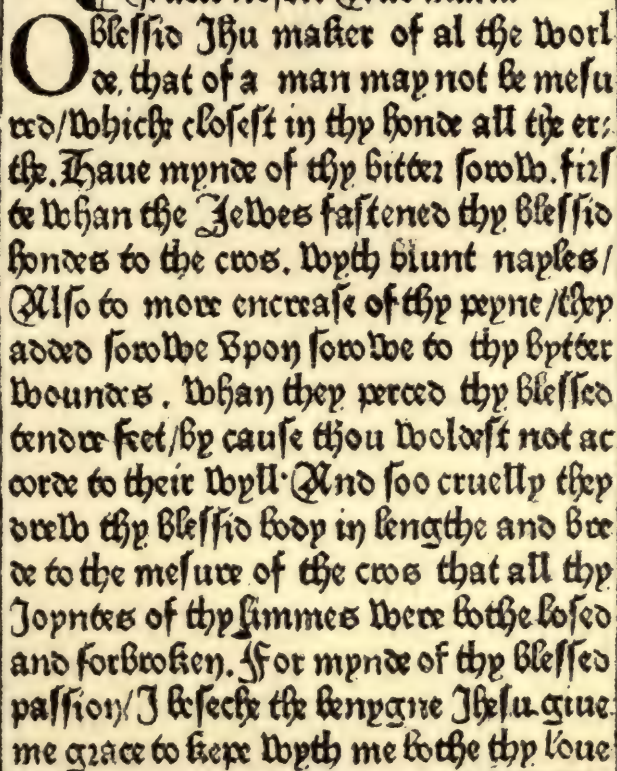 O blessid Ihu maker of al the worl
de. that of a man may not be mesu
red/whiche closest in thy honde all the er:
the. Haue mynde of thy bitter sorow. firs
te whan the Iewes fastened thy blessid
hondes to the cros. wyth blunt nayles/
Also to more encrease of thy peyne/they
added sorowe vpon sorowe to thy bytter
woundes. whan they perced thy blessed
tendre feet/by cause thou woldest not ac
corde to their wyll· And soo cruelly they
drew thy blessid body in lengthe and bre
de to the mesure of the cros that all thy
Ioyntes of thy limmes were bothe losed
and forbroken. For mynde of thy blessed
passion/I beseche the benygne Ihesu. giue
me grace to kepe wyth me bothe thy loue